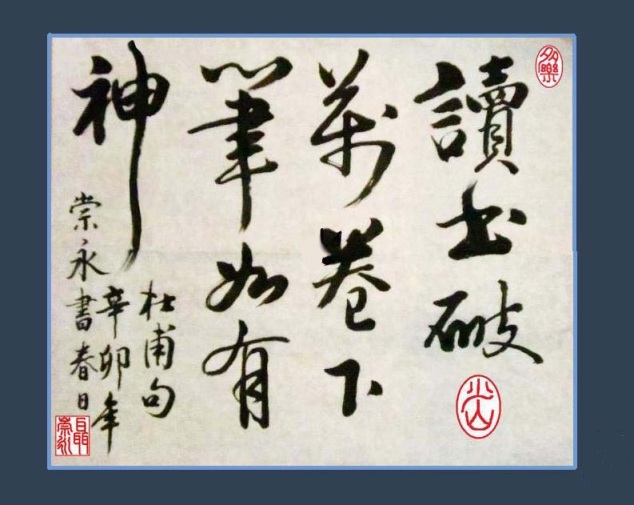 讀书破
萬卷下
筆如有
神
杜甫句
辛卯年
崇永書春日